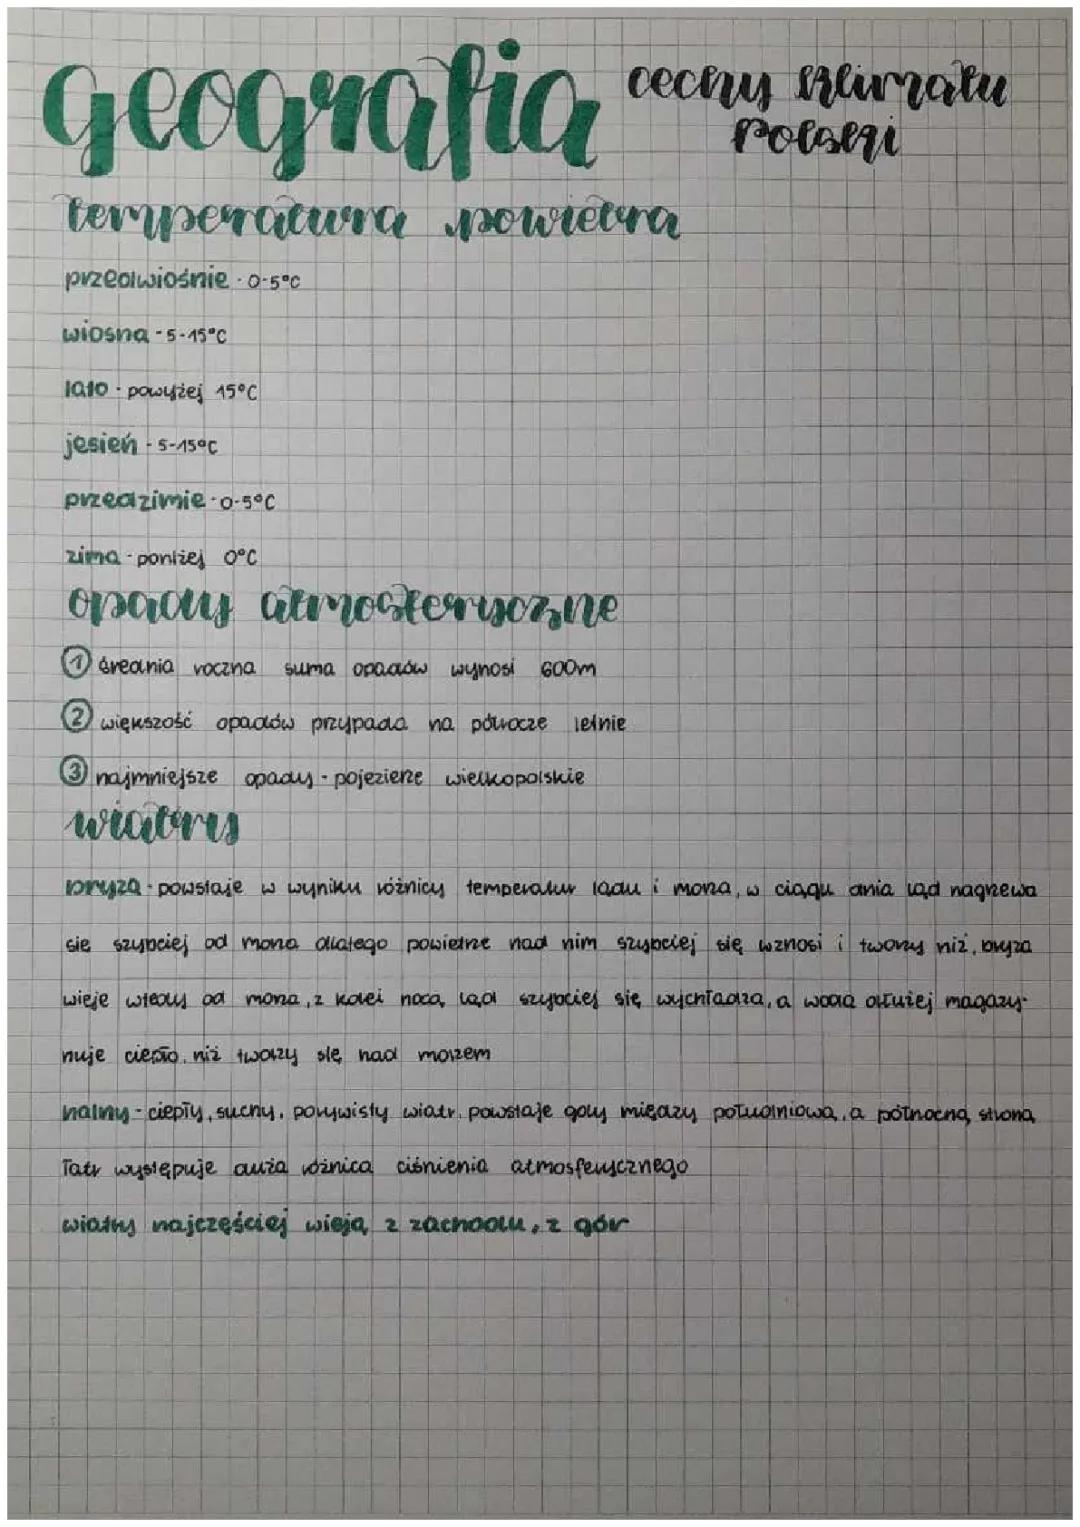 geografia cechy klimatu
Polski
temperatura powietrza
przedwiośnie - 0-5°C
wiosna - 5-15°C
lato - powyżej 15°C
jesień - 5-15°C
przedzimie - 0-5°C
zima - poniżej 0°C
opady atmosferyczne
① średnia roczna suma opadów wynosi 600m
② większość opadów przypada na półrocze letnie
③ najmniejsze opady - pojezierze wielkopolskie
wiatry
bryza - powstaje w wyniku różnicy temperatur lądu i morza, w ciągu dnia ląd nagrzewa
sie szybciej od morza dlatego powietrze nad nim szybciej się wznosi i tworzy niż, bryza
wieje wtedy od morza, z kolei nocą, ląd szybciej się wychładza, a woda dłużej magazy-
nuje ciepło. niż tworzy się nad morzem
halny - ciepły, suchy, porywisty wiatr. powstaje gdy między południową, a północną stroną
Tatr występuje duża różnica ciśnienia atmosferycznego
wiatry najczęściej wieją z zachodu, z gór